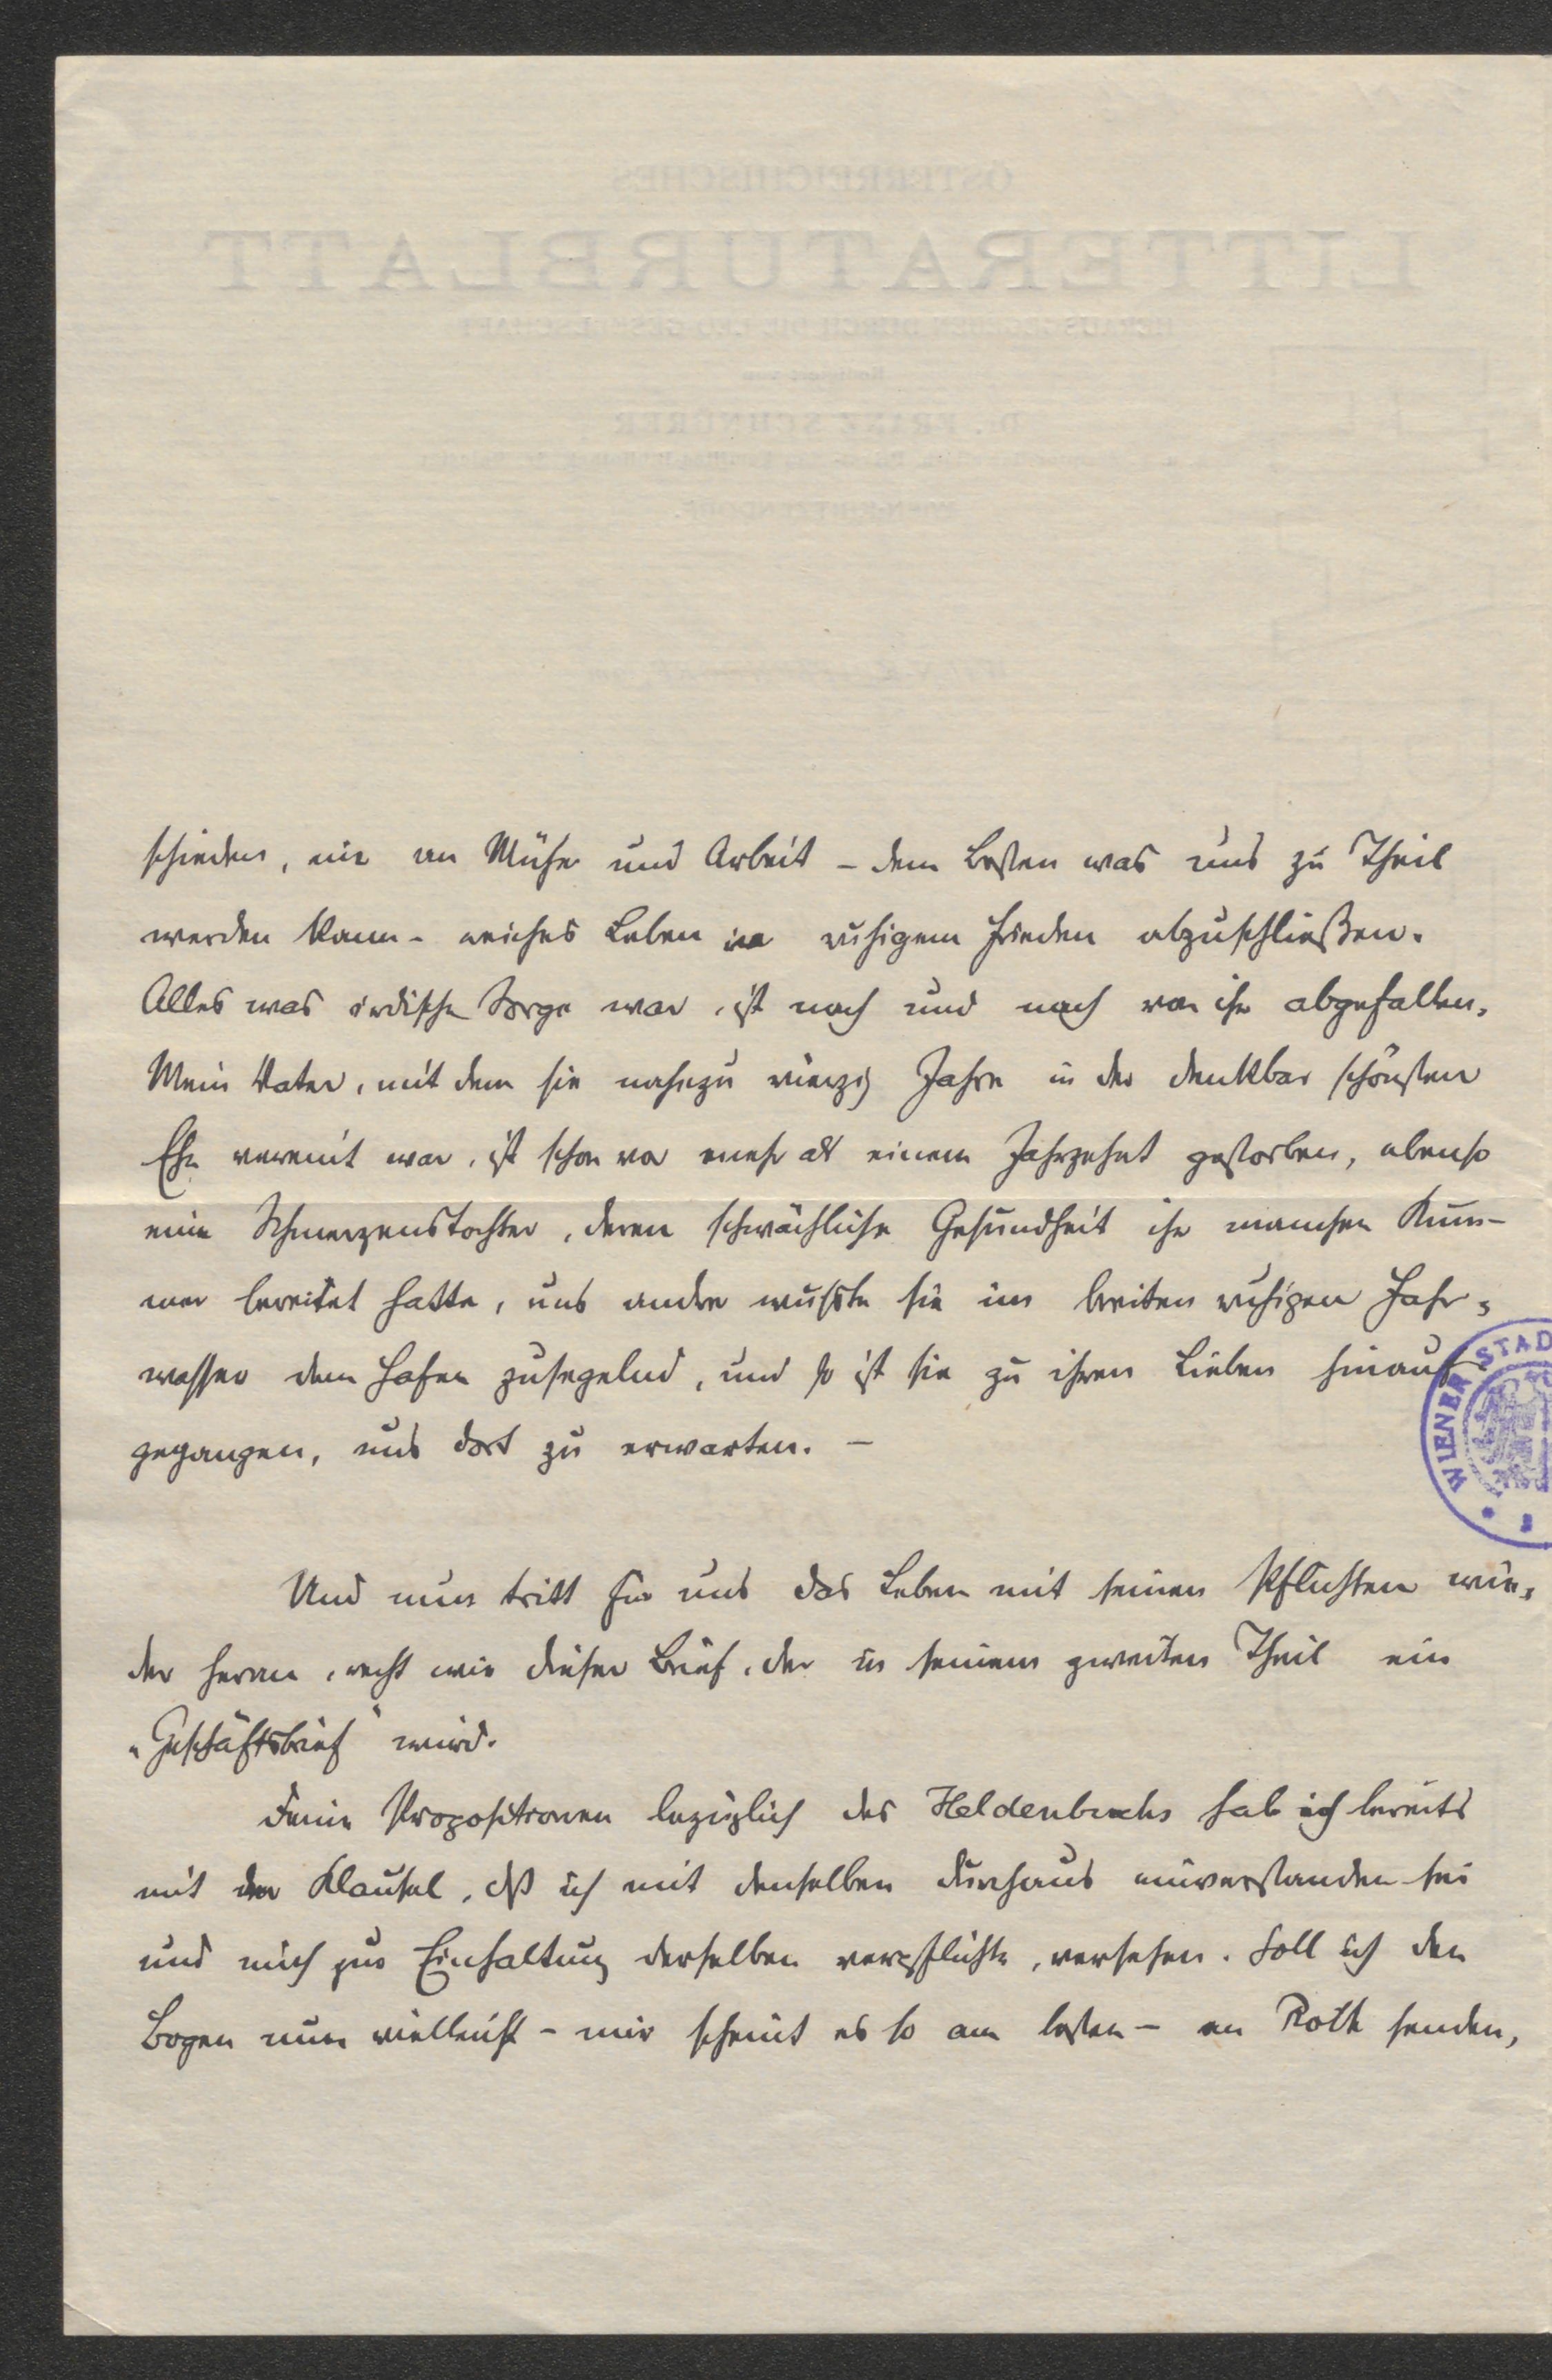 schieden, ein an Mühe und Arbeit – dem besten was uns zu Theil
werden kann – reiches Leben in ruhigem Frieden abzuschließen.
Alles was irdische Sorge war, ist nach und nach von ihr abgefallen,
Mein Vater, mit dem sie nahezu vierzig Jahre in der denkbar schönsten
Ehe vereint war, ist schon vor mehr als einem Jahrzehnt gestorben, ebenso
eine Schmerzenstochter, deren schwächliche Gesundheit ihr manchen Kum-
mer bereitet hatte, uns andre wußte sie im breiten ruhigen Fahr-
wasser dem Hafen zusegelnd, und so ist sie zu ihren Lieben hinauf
gegangen, uns dort zu erwarten. –
Und nun tritt für uns das Leben mit seinen Pflichten wie-
der heran, recht wie dieser Brief, der in seinem zweiten Theil ein
„Geschäftsbrief" wird.
Deine Propositionen bezüglich des Heldenbuchs hab ich bereits
mit der Klausel, dß ich mit denselben durchaus einverstanden sei
und mich zur Einhaltung derselben verpflichte, versehen. Soll ich den
Bogen nun vielleicht – mir scheint es so am besten – an Roth senden,
WIENER STAD
ÖSTERREICHISCHES
LITTERATURBLATT
HERAUSGEGEBEN DURCH DIE LEO-GESELLSCHAFT
Dr. FRANZ SCHNÜRER